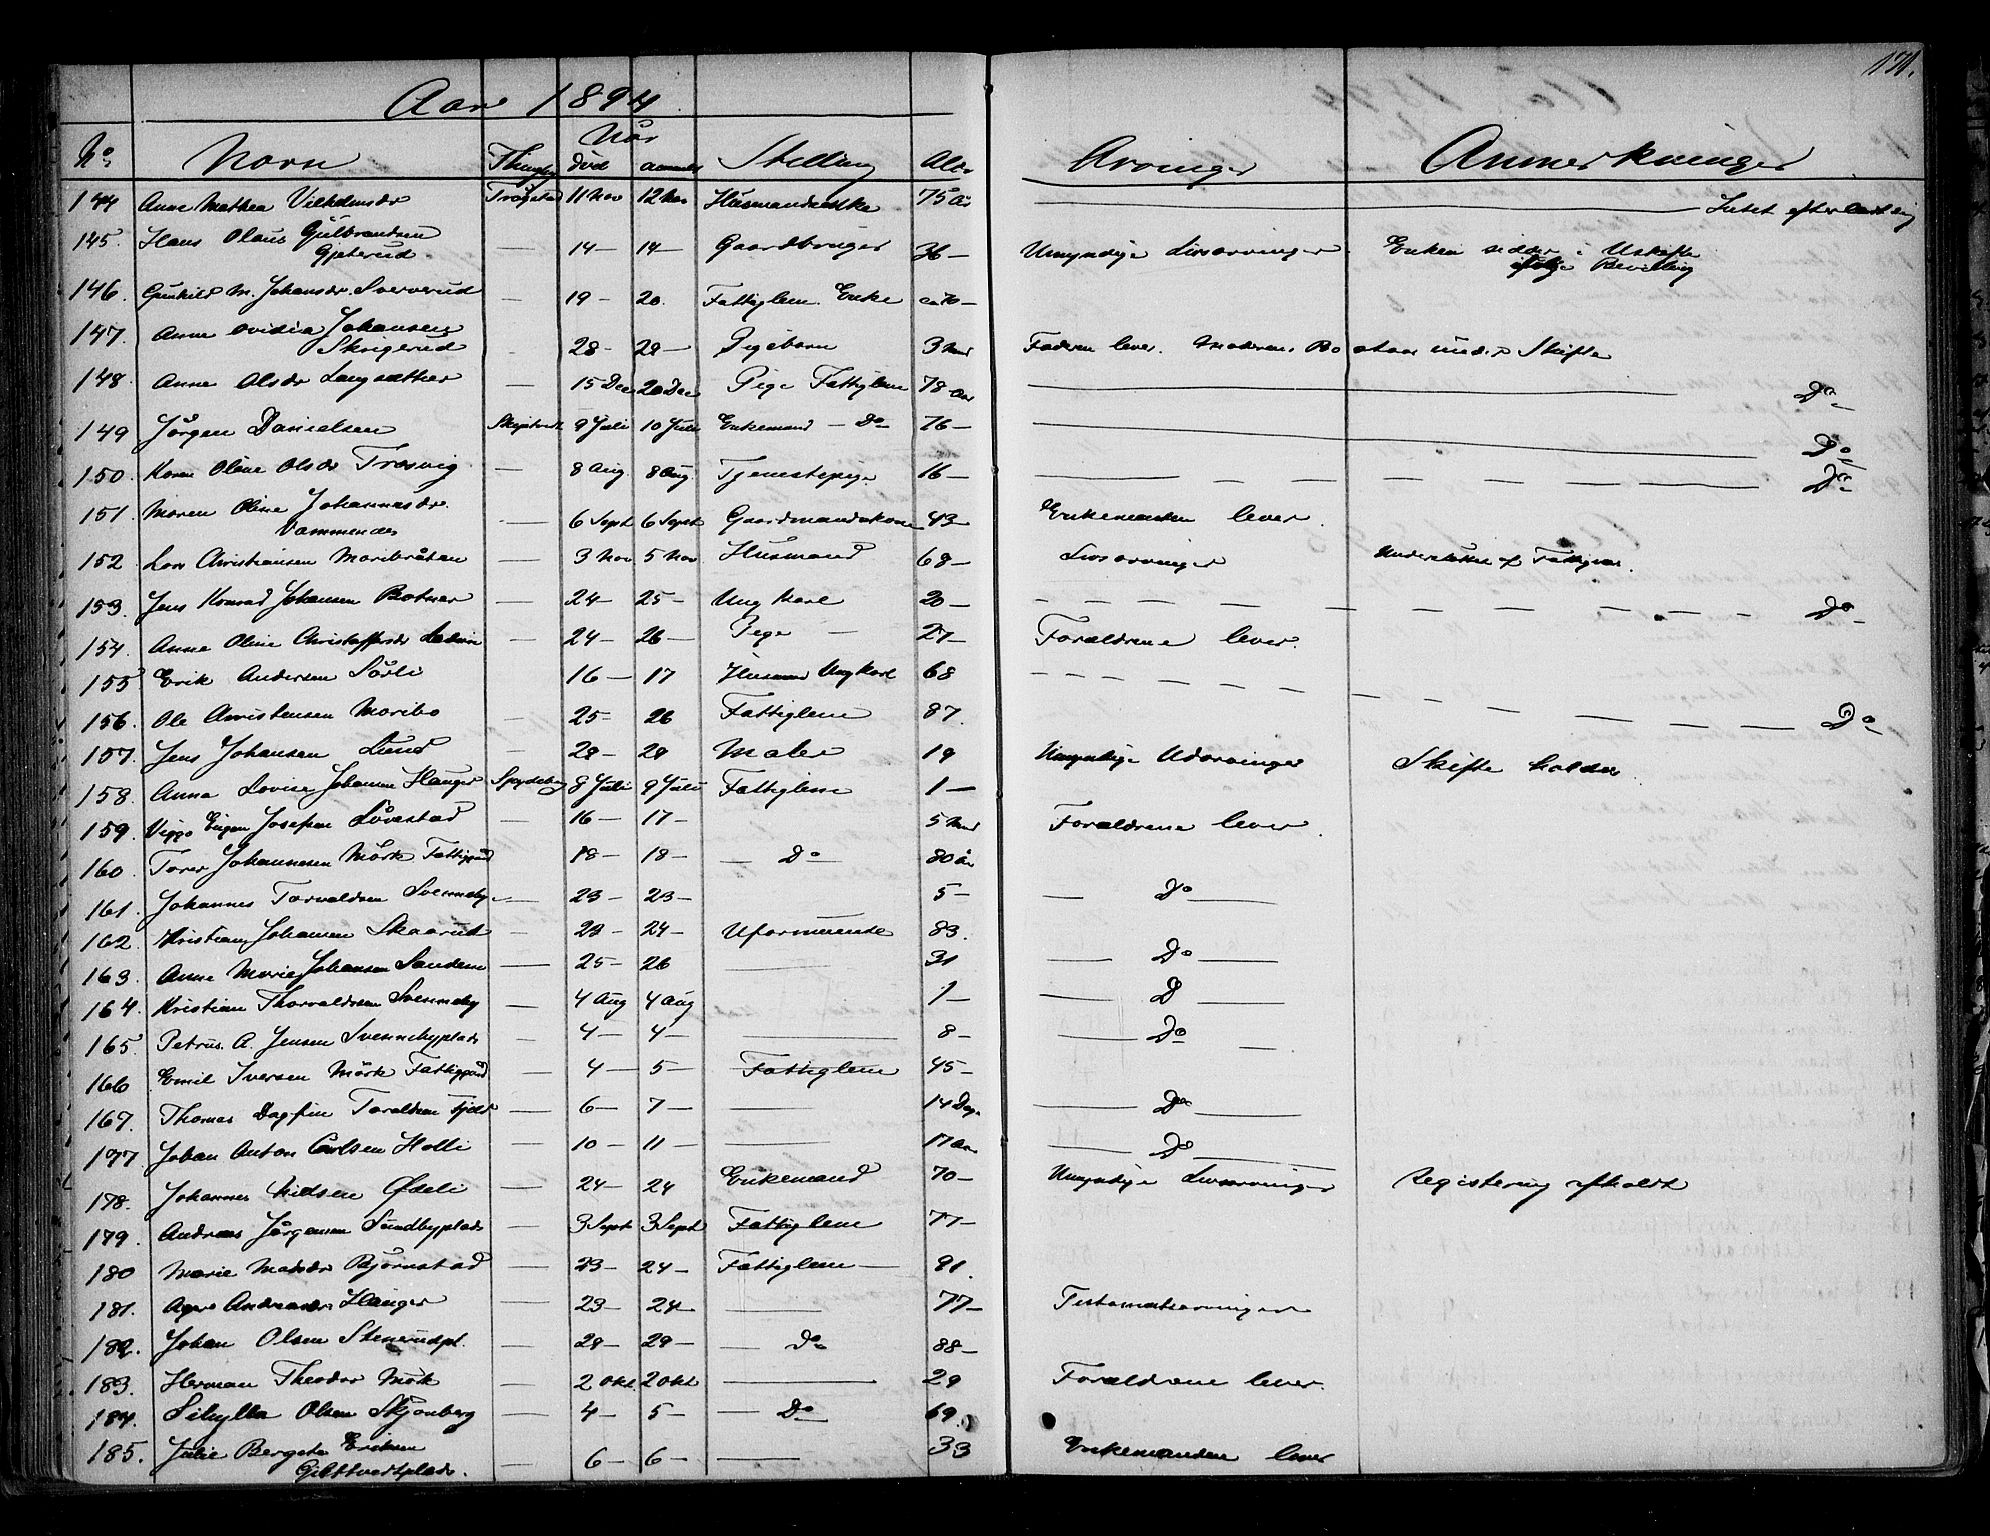 171.
Aar 1894
No. Navn Thinglag Naar død anmeldt Stilling Alder Arvinger Anmerkninger
144 Anne Mathea Vilhelmsdr Trøgstad 11 Nov 12 Nov Husmandsenke 75 Aar — Intet efterladt sig
145. Hans Olaus Gulbrandsen
Gjeterud — 14 — 14 — Gaardbruger 36 — Umyndige Livsarvinger Enken sidder i Uskifte
ifølge Bevilling
146. Gunhild M. Johansdr. Sververud — 19 — 20. Fattiglem. Enke ca 70 —
147. Anne Ovidia Johansen
Skrigerud — 28 — 29 — Pigebarn 3 Mnd Faderen lever. Moderens Bo staar under Skifte
148. Anne Olsdr Langsæther — 15 Dec 20 Dec Pige Fattiglem 78 Aar — Do —
149 Jørgen Danielsen Skiptvedt 9 Juli 10 Juli Enkemand — Do — 76 — Do
150. Karen Oline Olsdr Træsvig — 8 Aug. 8 Aug Tjenestepige 16 — Do —
151. Maren Oline Johannesdr.
Vammenæs — 6 Sept 6 Sept Gaardmandskone 43 — Enkemanden lever.
152 Lars Christiansen Maribråtan — 3 Nov 5 Nov Husmand 68 — Livsarvinger Understøttet af Fattigvæs.
153. Jens Konrad Johansen Botner — 24 — 25 — Ungkarl 20 — Do
154. Anne Oline Christoffersdr — 24 — 26 — Pige — 27 — Forældrene lever.
155 Erik Andersen Sørli — 16 — 17 Husmand Ungkarl 68
156. Ole Christensen Maribo — 25 — 26 Fattiglem 87. Do
157. Jens Johansen Lund — 28 — 29 Maler 19 Umyndige Udarvinger Skifte holdes
158. Anna Lovise Johansen Hauger Spydeberg 8 Juli 9 Juli Fattiglem 1 —
159. Viggo Eugen Josefsen Løvestad — 16 — 17 — 5 Mnd Forældrene lever.
160. Torer Johannesen Mørk Fattiggård 18 — 18 — — Do 80 år
161. Johannes Torvaldsen Svenneby — 23 — 23 — 5 — — Do —
162. Kristian Johansen Skaarud — 23 — 24 — Uformuende 83.
163. Anne Marie Johansen Sandem — 25 — 26 — 31 — Do —
164. Kristian Thorvaldsen Svenneby — 4 Aug 4 Aug 1 — — D —
165. Petrus A. Jensen Svennebyplads — 4 — 4 — — 8 — — Do —
166 Emil Iversen Mørk Fattiggård — 4 — 5 — Fattiglem 45 —
167. Thomas Dagfin Toraldsen Fjeld — 6 — 7 — — 14 Dage — Do —
177. Johan Anton Carlsen Holli — 10 — 11 — — 17 Aar — Do —
178. Johannes Nielsen Ødeli — 24 — 24 Enkemand 70 — Umyndige Livsarvinger Registering afholdt
179. Andreas Jørgensen Sundbyplads — 3 Sept 3 Sept Fattiglem 77 —
180 Marie Madsdr Bjørnstad — 23 — 24 — Fattiglem — 91.
181. Agnes Andreasdr Hauger — 23 — 24 — 77 — Testamentsarvinger
182. Johan Olsen Stenerudpl. — 29 — 29 — — Do 88 —
183. Herman Theodor Mørk — 2 Okt. 2 Okt — 29 Forældrene lever.
184. Sibylla Olsen Skjønberg — 4 — 5 — — Do 69.
185. Julie Bergete Eriksen
Gibttvedtplads. — 6 — 6 — — 33 Enkemanden lever